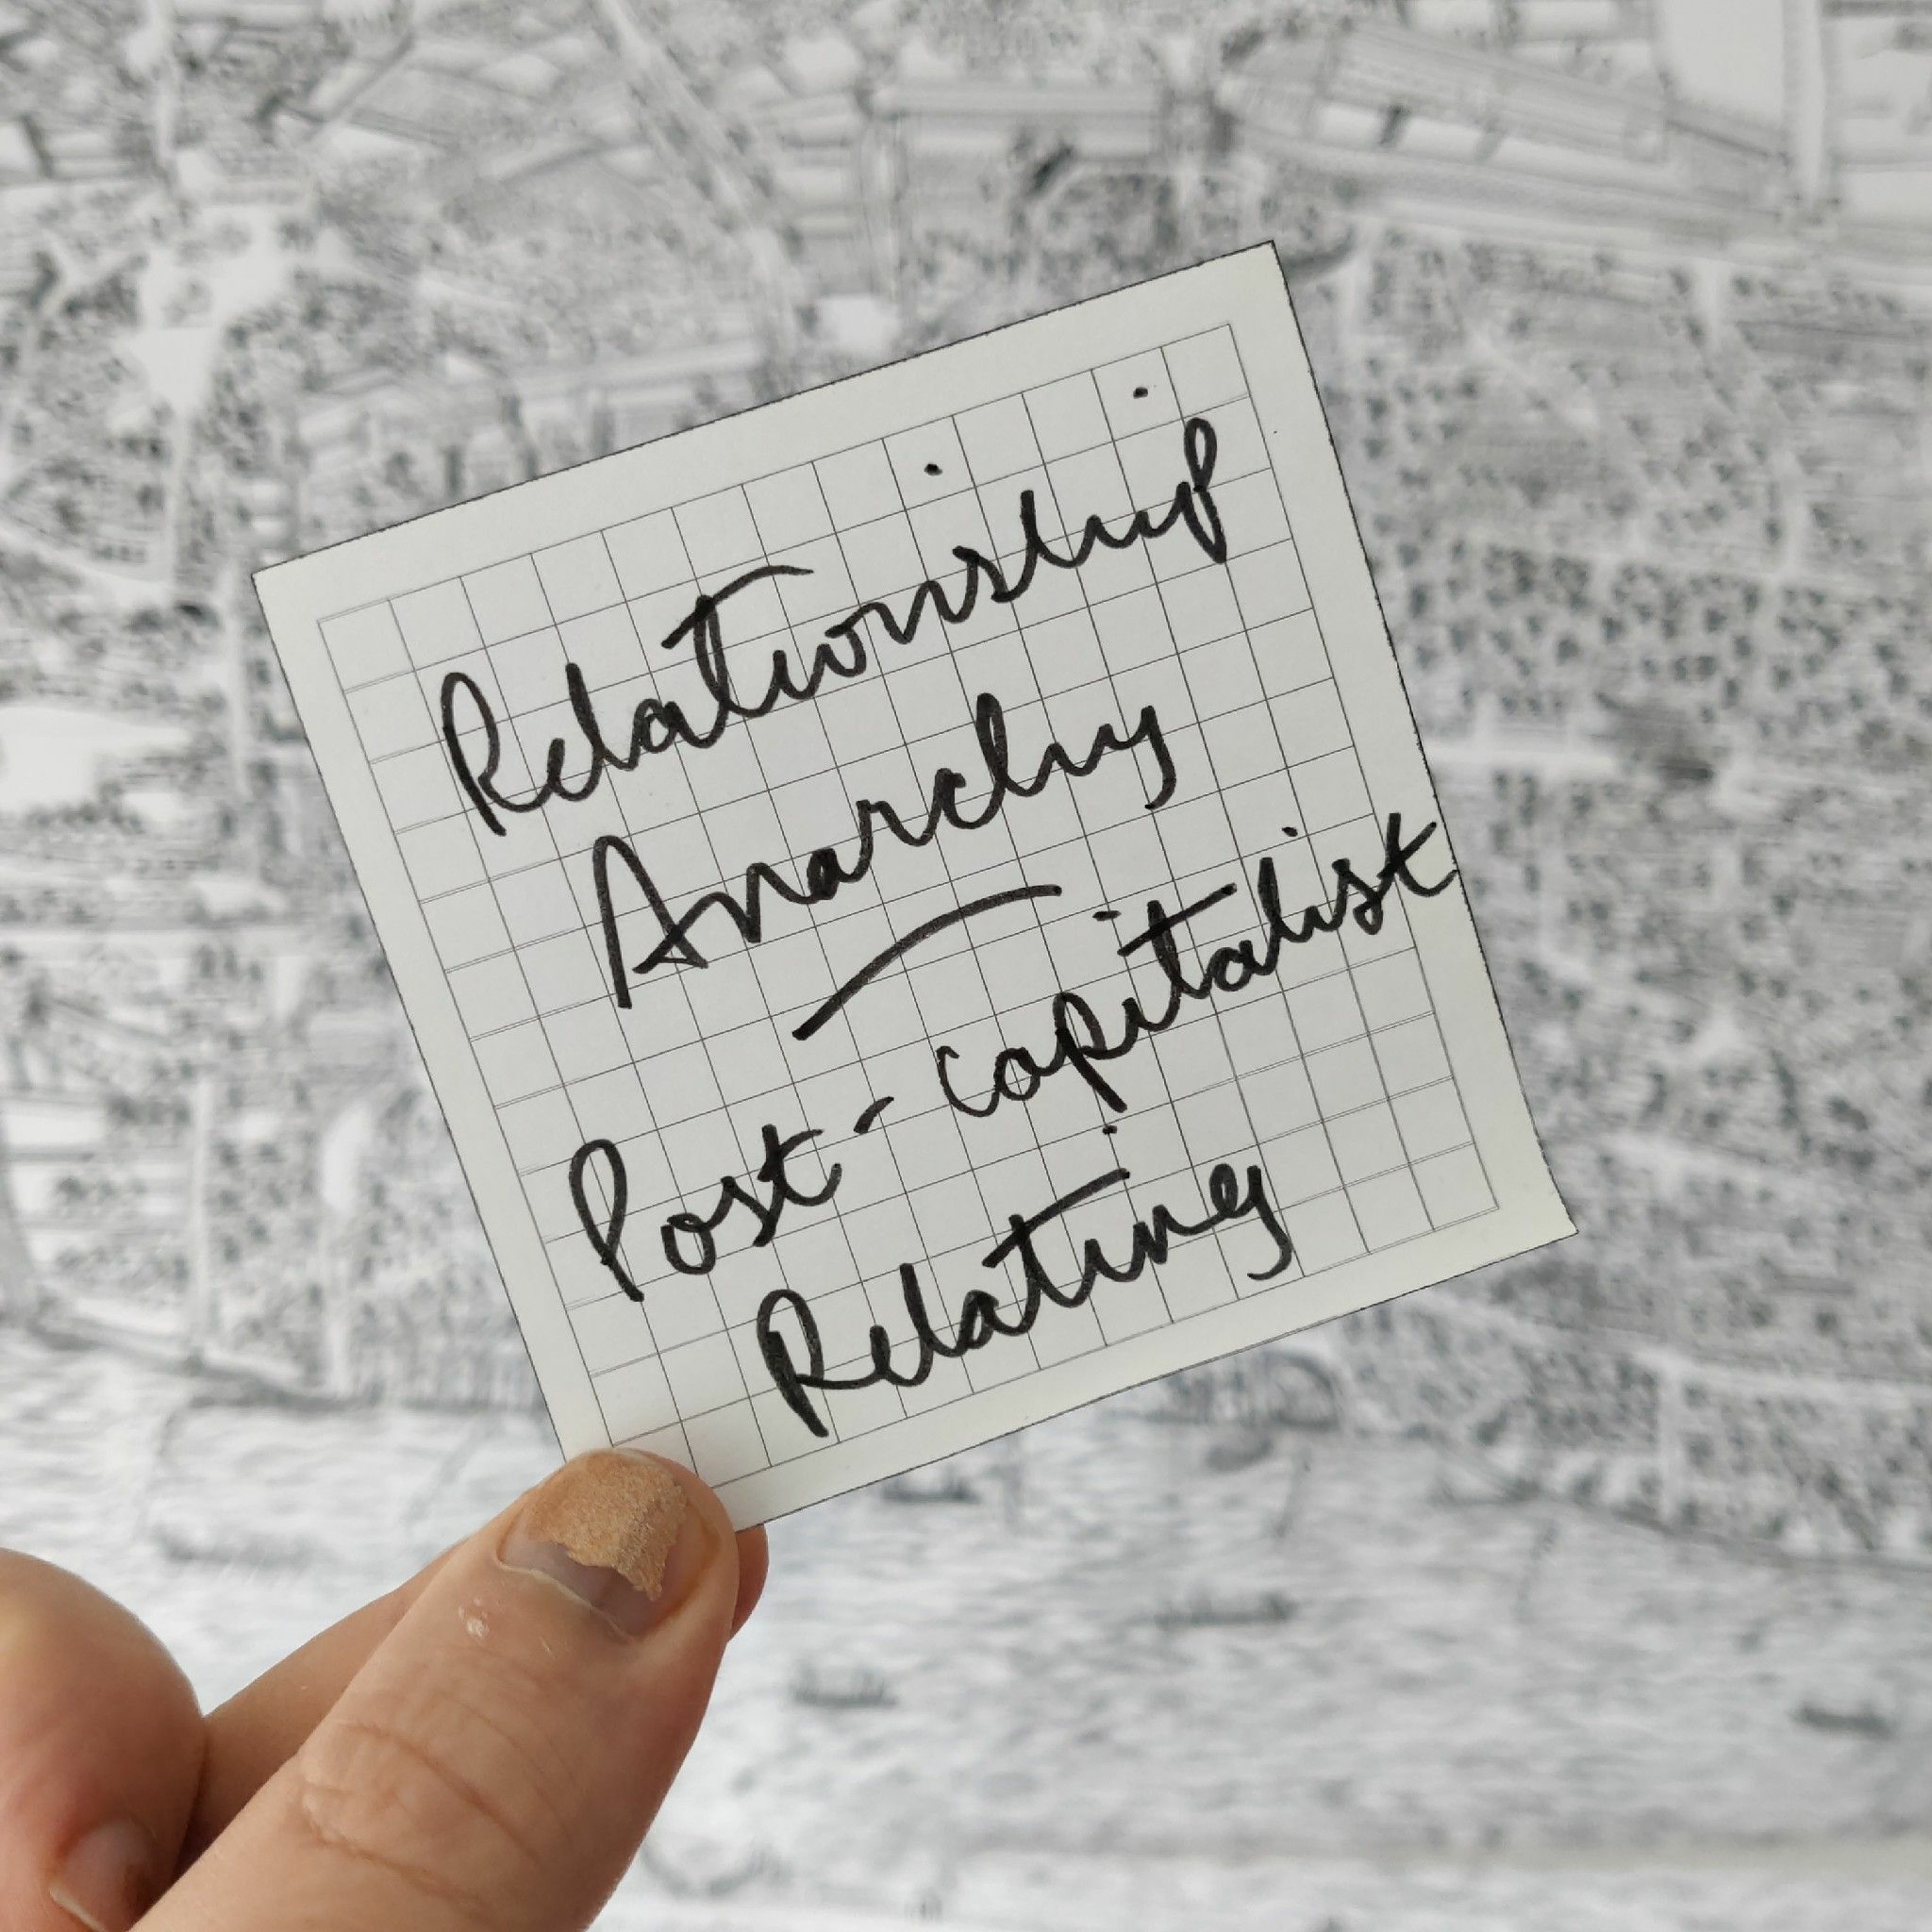 Relationship
Anarchy
—
Post-capitalist
Relating